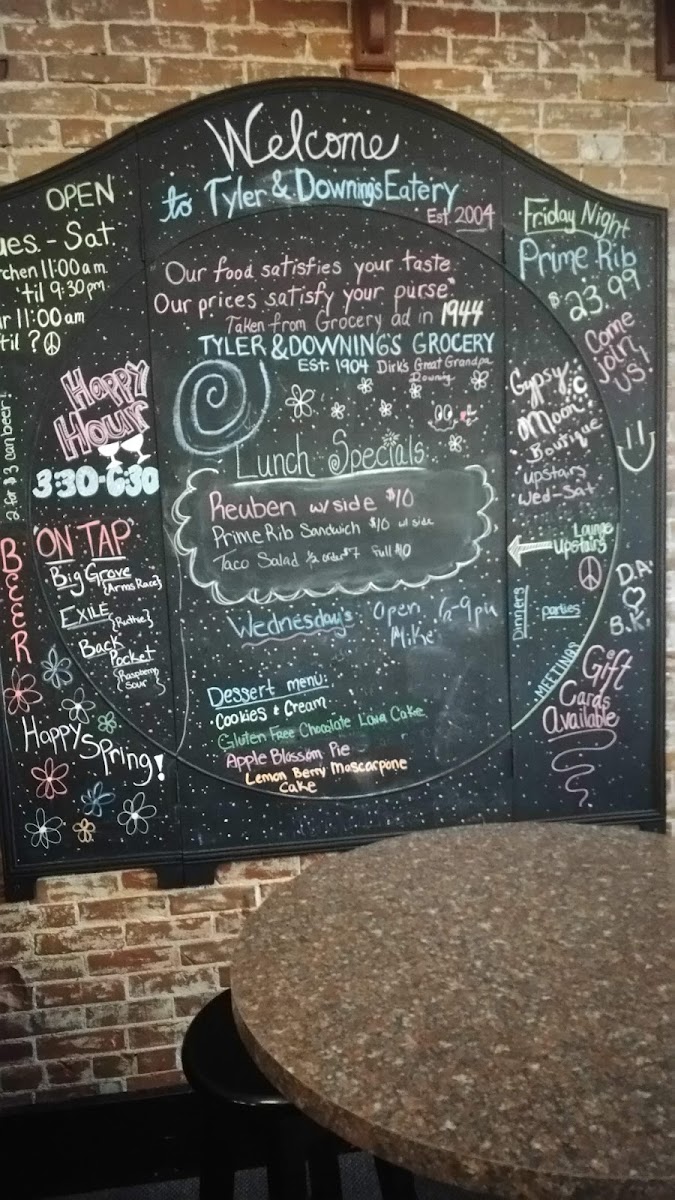 Welcome
to Tyler & Downing's Eatery
Est 2004
Our food satisfies your taste
Our prices satisfy your purse"
Taken from Grocery ad in 1944
TYLER & DOWNING'S GROCERY
EST. 1904 Dirk's Great Grandpa
Downing
Lunch Specials
Reuben w/side $10
Prime Rib Sandwich $10 w/ side
Taco Salad 1/2 order $7 Full $10
Wednesday's Open 6-9pm
Mike
Dessert menu:
Cookies & Cream
Gluten Free Chocolate Lava Cake
Apple Blossom Pie
Lemon Berry Mascarpone
Cake
OPEN
ues. - Sat.
tchen 11:00 a.m.
'til 9:30 pm
ar 11:00 am
til ?
Happy
Hour
3:30-6:30
2 for $3 can beer!
BEER
"ON TAP"
Big Grove
{Arms Race}
EXILE
{Ruthie}
Back
Pocket
{Raspberry
Sour}
Happy Spring!
Friday Night
Prime Rib
$23.99
Come
Join
US!
Gypsy
Moon
Boutique
upstairs
Wed-Sat
Lounge
Upstairs
Dinners
parties
MEETINGS
D.A.
B.K.
Gift
Cards
Available